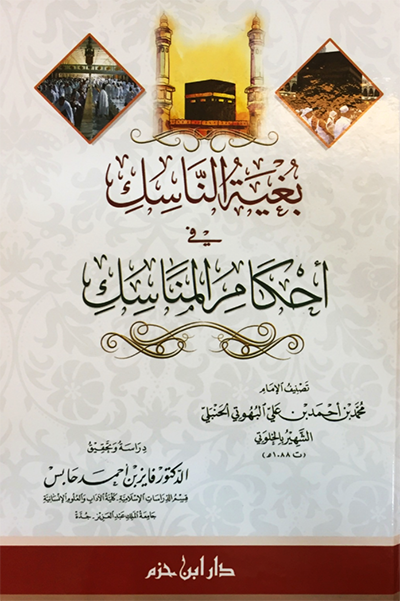 بُغْيَةُ النَّاسِكِ
في
أَحْكَامِ المَنَاسِكِ
تصنيف الإمام
محمد بن أحمد بن علي البهوتي الحنبلي
الشهير بالخلوتي
(ت ١٠٨٨ هـ)
دراسة وتحقيق
الدكتور فايز بن أحمد حابس
قسم الدراسات الإسلامية، كلية الآداب والعلوم الإنسانية
جامعة الملك عبد العزيز - جدة
دار ابن حزم